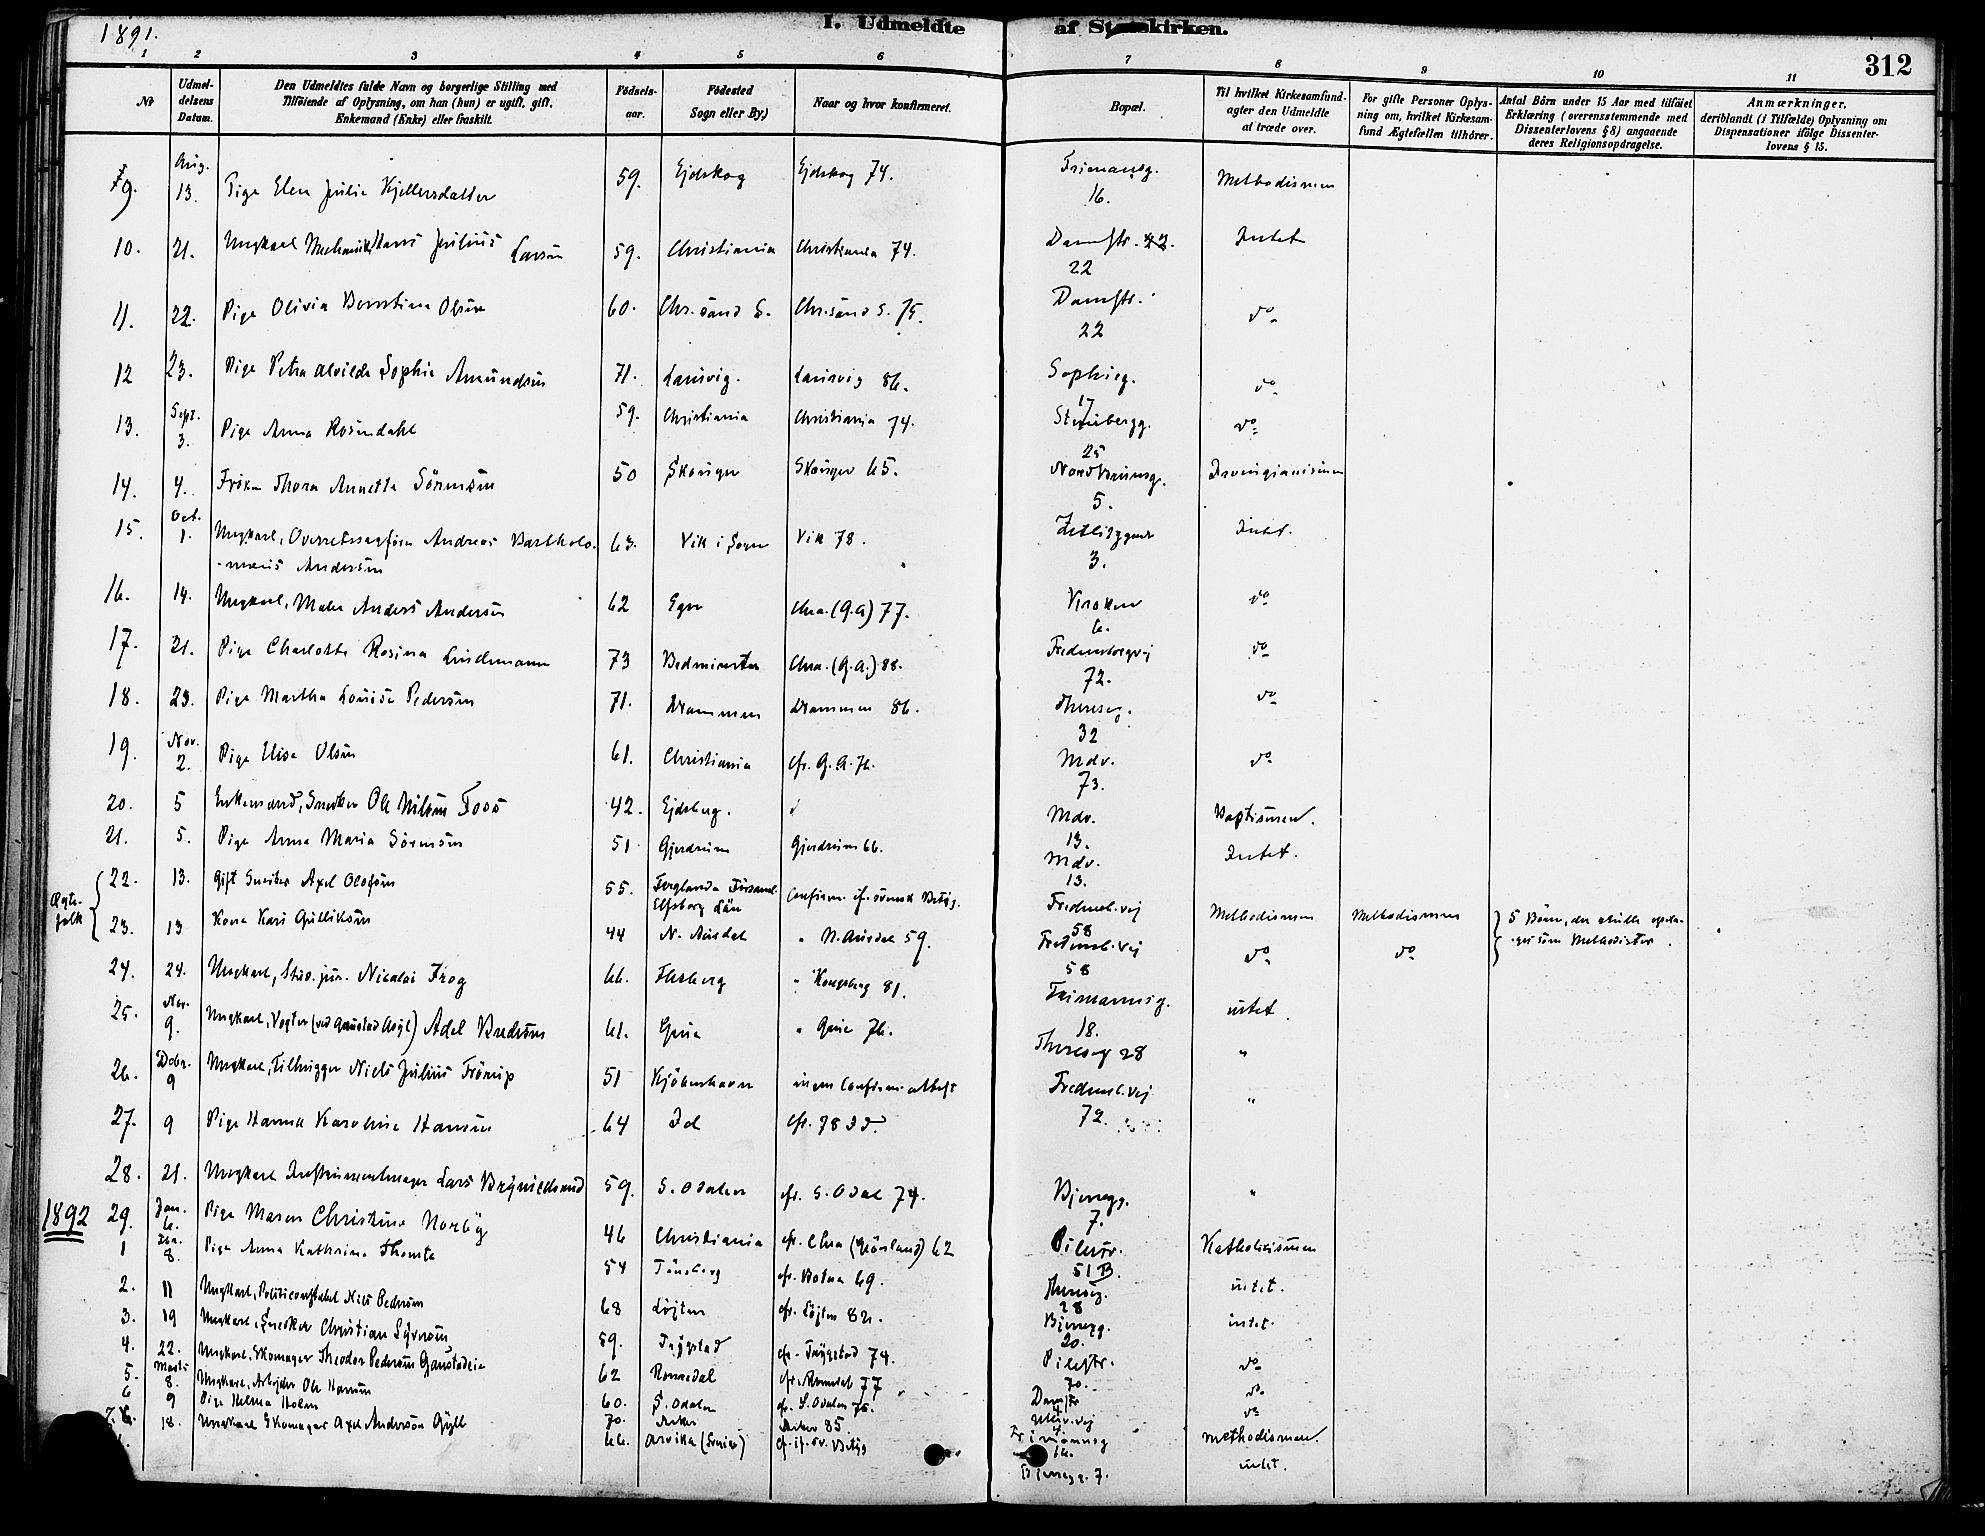 1891.
I. Udmeldte af Statskirken.
312
1 2 3 4 5 6 7 8 9 10 11
№
Udmel-
delsens
Datum.
Den Udmeldtes fulde Navn og borgerlige Stilling med
Tilföiende af Oplysning, om han (hun) er ugift, gift,
Enkemand (Enke) eller fraskilt.
Födsels-
aar.
Födested
Sogn eller By.)
Naar og hvor konfirmeret.
Bopæl.
Til hvilket Kirkesamfund
agter den Udmeldte
at træde over.
For gifte Personer Oplys-
ning om, hvilket Kirkesam-
fund Ægtefællen tilhörer.
Antal Börn under 15 Aar med tilföiet
Erklæring (overensstemmende med
Dissenterlovens § 8) angaaende
deres Religionsopdragelse.
Anmærkninger,
deriblandt (i Tilfælde) Oplysning om
Dispensationer ifölge Dissenter-
lovens § 15.
9. Aug. 13. Pige Elen Julie Kjellersdatter 59. Ejdskog Ejdskog 74. 16. Methodismen
10. 21. Ungkarl Mechanik. Hans Julius Larsen 59. Christiania Christiania 74. Damstr. 22 Intet
11. 22. Pige Olivia Olsen 60. Chr.sand S. Chr.sand S. 75. Damstr. 22 do
12 23. Pige Petra Alvilde Sophie Amundsen 71. Laurvig. Laurvig 86. Sophieg. 17 do
13. Sept. 3. Pige Anna Rosendahl 59. Christiania Christiania 74. Stensbergg. 25 do
14. 4. Frøken Thora Annette Sörensen 50 Skouger Skouger 65. 5. Irvingianismen
15. Oct. 1. Ungkarl, Overretssagförer Andreas Bartholo-
mæus Andersen 63. Vik i Sogn Vik 78. 3. Intet.
16. 14. Ungkarl, Maler Anders Andersen 62 Eger Chra. (G.A) 77. Kroken 6. do
17. 21. Pige Charlotte Rosina Lindemann 73 Chra. (G.A.) 88. 72. do
18. 23. Pige Martha Louise Pedersen 71. Drammen Drammen 86. Thereseg. 32 do
19. Nov. 2. Pige Elise Olsen 61. Christiania cfr. G.A. 76. Mdv. 73. do
20. 5 Enkemand, Snedker Ole Nilsen Foss 42. Ejdsberg. Mdv. 13. Baptismen.
21. 5. Pige Anna Maria Sörensen 51 Gjerdrum Gjerdrum 66. Mdv. 13. Intet.
Ægte-
folk
22. 13. Gift Snedker Axel Olofsen 55. Elfsborg Län Confirm. if. svensk Betyg. Fredensb.vej 58 Methodismen Methodismen 5 Börn, der skulle opdra-
ges som Methodister.
23. 13 Kone Kari Gulliksen 44 N. Aurdal " N. Aurdal 59. Fredensb.vej 58 do do
24. 24. Ungkarl, Stud. jur. Nicolai Frog 66. Flesberg " Kongsberg 81. 18. intet.
25. Nov. 9. Ungkarl, Vogter (ved Gaustad Asyl) Adel Bredesen 61. Grue " Grue 76. Thereseg 28 "
26. Decbr. 9 Ungkarl, Niels Julius Frörup 51 Kjöbenhavn ingen Confirm. attest Fredensb.vej 72. "
27. 9 Pige Hanna Karoline Hansen 64 Id cfr. 78 Id.
28. 21. Ungkarl Instrumentmager Lars Brynildsrud 59. S. Odalen cfr. S. Odal 74. Bjerregg. 7. "
1892
29. Jan. 6. Pige Maren Christine Norby 46 Christiania cfr. Chra (Grönland) 62 Pilestr. 51 B. Katholicismen
1 8. Pige Anna Kathrine Thomte 54 Tönsberg cfr. Botne 69. Thereseg. 28 intet.
2. 11 Ungkarl, Politiconstabel Nils Pedersen 68 Löjten cfr. Löjten 82. Bjerregg. 20. intet.
3. 19 Ungkarl, Snedker Christian Syversen 59. Trygstad cfr. Trygstad 74. Pilestr. 70. do
4. 22. Ungkarl, Skomager Theodor Pedersen 62 Romedal cfr. Romedal 77 do
5. Marts 8. Ungkarl, Arbejder Ole Hansen 60. S. Odalen cfr. S. Odalen 76. do
6 9 Pige Helma Holm 70. Aker Aker 85. methodismen.
7. 18. Ungkarl Skomager Axel Anderson Gyll 66. Arvika (Sverige) cf. if. sv. Betyg Bjerregg. 7. intet.